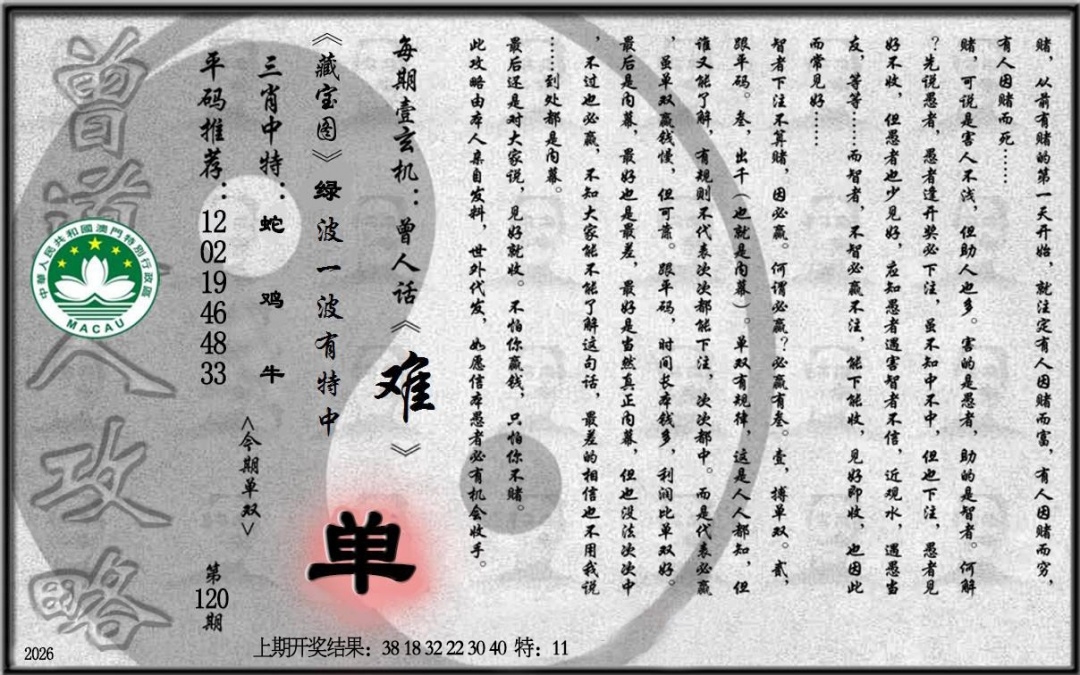 赌，从前有赌的第一天开始，就注定有人因赌而富，有人因赌而穷，
有人因赌而死……
赌，可说是害人不浅，但助人也多。害的是愚者，助的是智者。何解
？先说愚者，愚者逢开奖必下注，虽不知中不中，但也下注，愚者见
好不收，但愚者也少见好，应知愚者遇害智者不信，近观水，遇愚当
友，等等……而智者，不智必赢不注，能下能收，见好即收，也因此
而常见好……
智者下注不算赌，因必赢。何谓必赢？必赢有叁。壹，搏单双。贰，
跟平码。叁，出千（也就是内幕）。单双有规律，这是人人都知，但
谁又能了解，有规则不代表次次都能下注，次次都中。而是代表必赢
，虽单双赢钱慢，但可靠。跟平码，时间长本钱多，利润比单双好。
最后是内幕，最好也是最差，最好是当然真正内幕，但也没法次次中
，不过也必赢，不知大家能不能了解这句话，最差的相信也不用我说
……到处都是内幕。
最后还是对大家说，见好就收。不怕你赢钱，只怕你不赌。
此攻略由本人亲自发料，世外代发，如愿信本愚者必有机会收手。
每期壹玄机：曾人话《难》
《藏宝图》绿波一波有特中
单
三肖中特：蛇 鸡 牛
<今期单双>
平码推荐：12 02 19 46 48 33
第120期
曾道人攻略
中華人民共和國澳門特別行政區
MACAU
2026
上期开奖结果：38 18 32 22 30 40 特：11